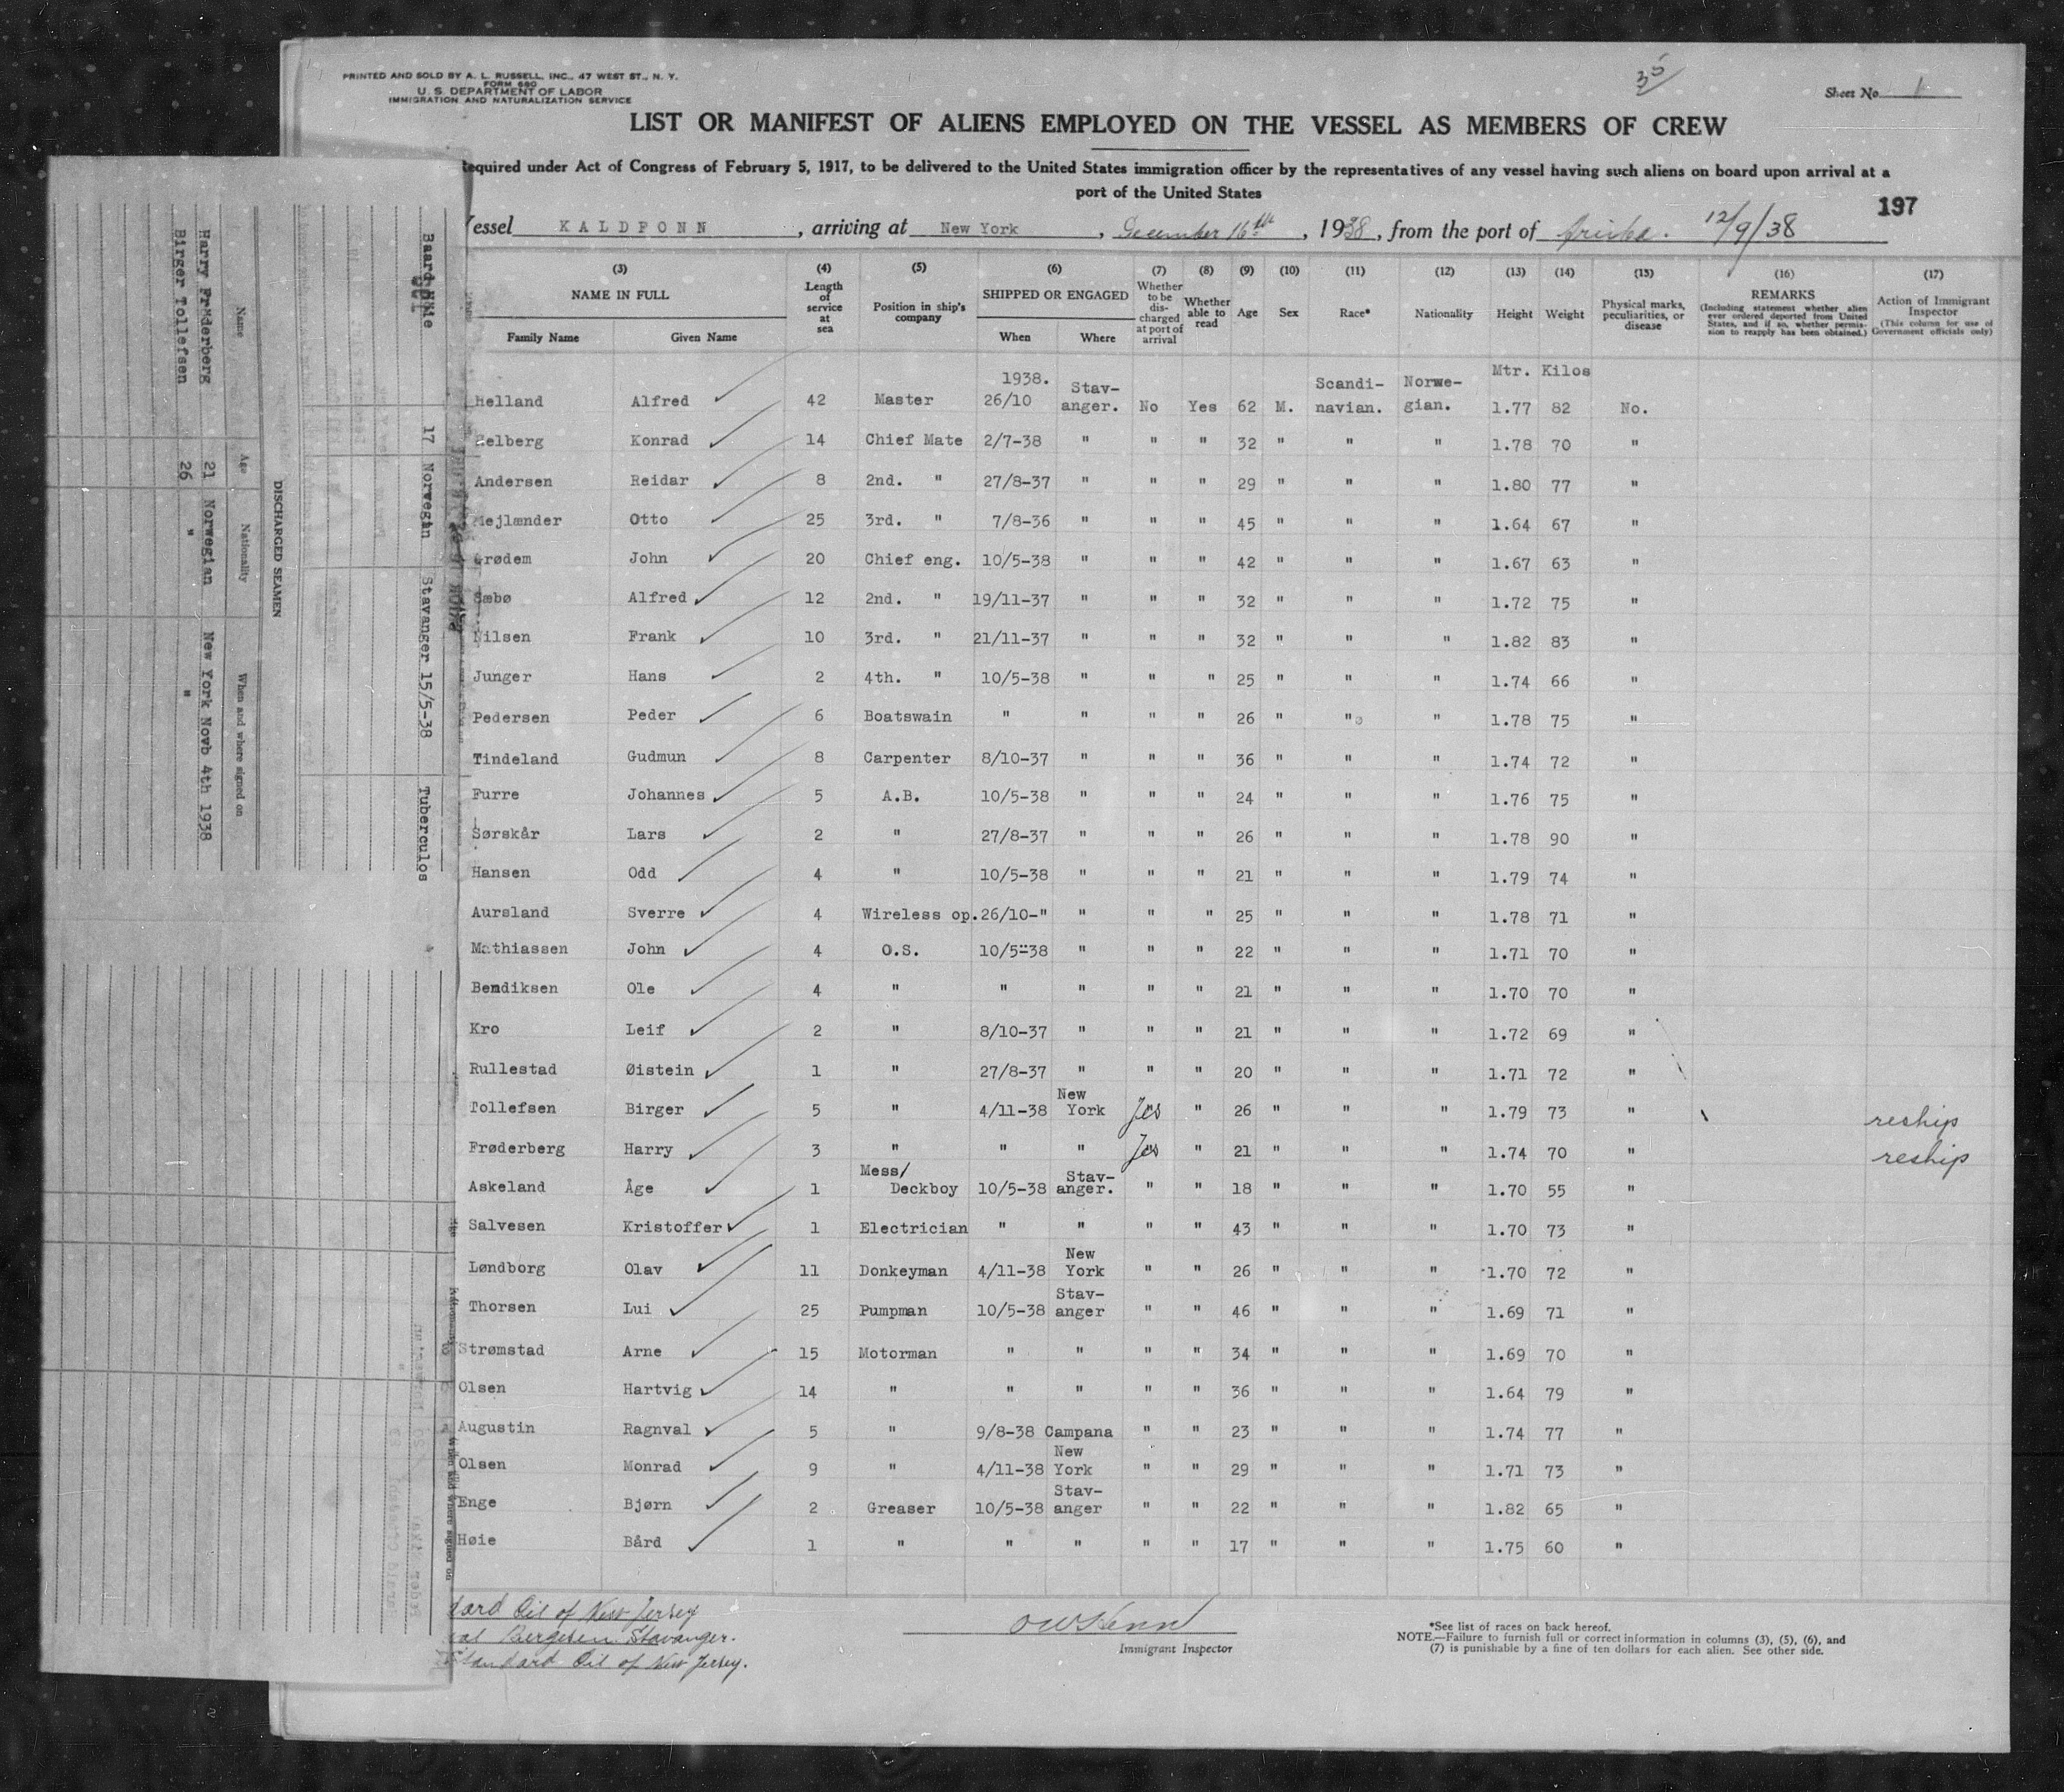 PRINTED AND SOLD BY A. L. RUSSELL, INC., 47 WEST ST., N. Y.
FORM 680
U. S. DEPARTMENT OF LABOR
IMMIGRATION AND NATURALIZATION SERVICE
35
Sheet No. 1
LIST OR MANIFEST OF ALIENS EMPLOYED ON THE VESSEL AS MEMBERS OF CREW
equired under Act of Congress of February 5, 1917, to be delivered to the United States immigration officer by the representatives of any vessel having such aliens on board upon arrival at a
port of the United States
197
essel KALDFONN, arriving at New York, December 16th, 1938, from the port of 12/9/38
(3) NAME IN FULL Family Name Given Name
(4) Length of service at sea
(5) Position in ship's company
(6) SHIPPED OR ENGAGED When Where
(7) Whether to be discharged at port of arrival
(8) Whether able to read
(9) Age
(10) Sex
(11) Race*
(12) Nationality
(13) Height
(14) Weight
(15) Physical marks, peculiarities, or disease
(16) REMARKS (Including statement whether alien ever ordered deported from United States, and if so, whether permission to reapply has been obtained.)
(17) Action of Immigrant Inspector (This column for use of Government officials only)
1938. Mtr. Kilos
Helland Alfred 42 Master 26/10 Stav-anger. No Yes 62 M. Scandi-navian. Norwe-gian. 1.77 82 No.
elberg Konrad 14 Chief Mate 2/7-38 " " " 32 " " " 1.78 70 "
Andersen Reidar 8 2nd. " 27/8-37 " " " 29 " " " 1.80 77 "
Mejlænder Otto 25 3rd. " 7/8-36 " " " 45 " " " 1.64 67 "
Grødem John 20 Chief eng. 10/5-38 " " " 42 " " " 1.67 63 "
Sæbø Alfred 12 2nd. " 19/11-37 " " " 32 " " " 1.72 75 "
Nilsen Frank 10 3rd. " 21/11-37 " " " 32 " " " 1.82 83 "
Junger Hans 2 4th. " 10/5-38 " " " 25 " " " 1.74 66 "
Pedersen Peder 6 Boatswain " " " " 26 " " " 1.78 75 "
Tindeland Gudmun 8 Carpenter 8/10-37 " " " 36 " " " 1.74 72 "
Furre Johannes 5 A.B. 10/5-38 " " " 24 " " " 1.76 75 "
Sørskår Lars 2 " 27/8-37 " " " 26 " " " 1.78 90 "
Hansen Odd 4 " 10/5-38 " " " 21 " " " 1.79 74 "
Aursland Sverre 4 Wireless op. 26/10-" " " " 25 " " " 1.78 71 "
Mathiassen John 4 O.S. 10/5-38 " " " 22 " " " 1.71 70 "
Bendiksen Ole 4 " " " " " 21 " " " 1.70 70 "
Kro Leif 2 " 8/10-37 " " " 21 " " " 1.72 69 "
Rullestad Øistein 1 " 27/8-37 " " " 20 " " " 1.71 72 "
Tollefsen Birger 5 " 4/11-38 New York Yes " 26 " " " 1.79 73 " reship
Frøderberg Harry 3 " " " Yes " 21 " " " 1.74 70 " reship
Askeland Åge 1 Mess/Deckboy 10/5-38 Stav-anger. " " 18 " " " 1.70 55 "
Salvesen Kristoffer 1 Electrician " " " " 43 " " " 1.70 73 "
Løndborg Olav 11 Donkeyman 4/11-38 New York " " 26 " " " 1.70 72 "
Thorsen Lui 25 Pumpman 10/5-38 Stav-anger " " 46 " " " 1.69 71 "
Strømstad Arne 15 Motorman " " " " 34 " " " 1.69 70 "
Olsen Hartvig 14 " " " " " 36 " " " 1.64 79 "
Augustin Ragnval 5 " 9/8-38 Campana " " 23 " " " 1.74 77 "
Olsen Monrad 9 " 4/11-38 New York " " 29 " " " 1.71 73 "
Enge Bjørn 2 Greaser 10/5-38 Stav-anger " " 22 " " " 1.82 65 "
Høie Bård 1 " " " " " 17 " " " 1.75 60 "
dard Oil of New Jersey
Bergesen Stavanger.
Standard Oil of New Jersey.
Immigrant Inspector
*See list of races on back hereof.
NOTE.—Failure to furnish full or correct information in columns (3), (5), (6), and
(7) is punishable by a fine of ten dollars for each alien. See other side.
17 Norwegin Stavanger 15/5-38 Tuberculos
DISCHARGED SEAMEN
Name Age Nationality When and where signed on
Harry Frøderberg 21 Norwegian New York Novb 4th 1938
Birger Tollefsen 26 " "